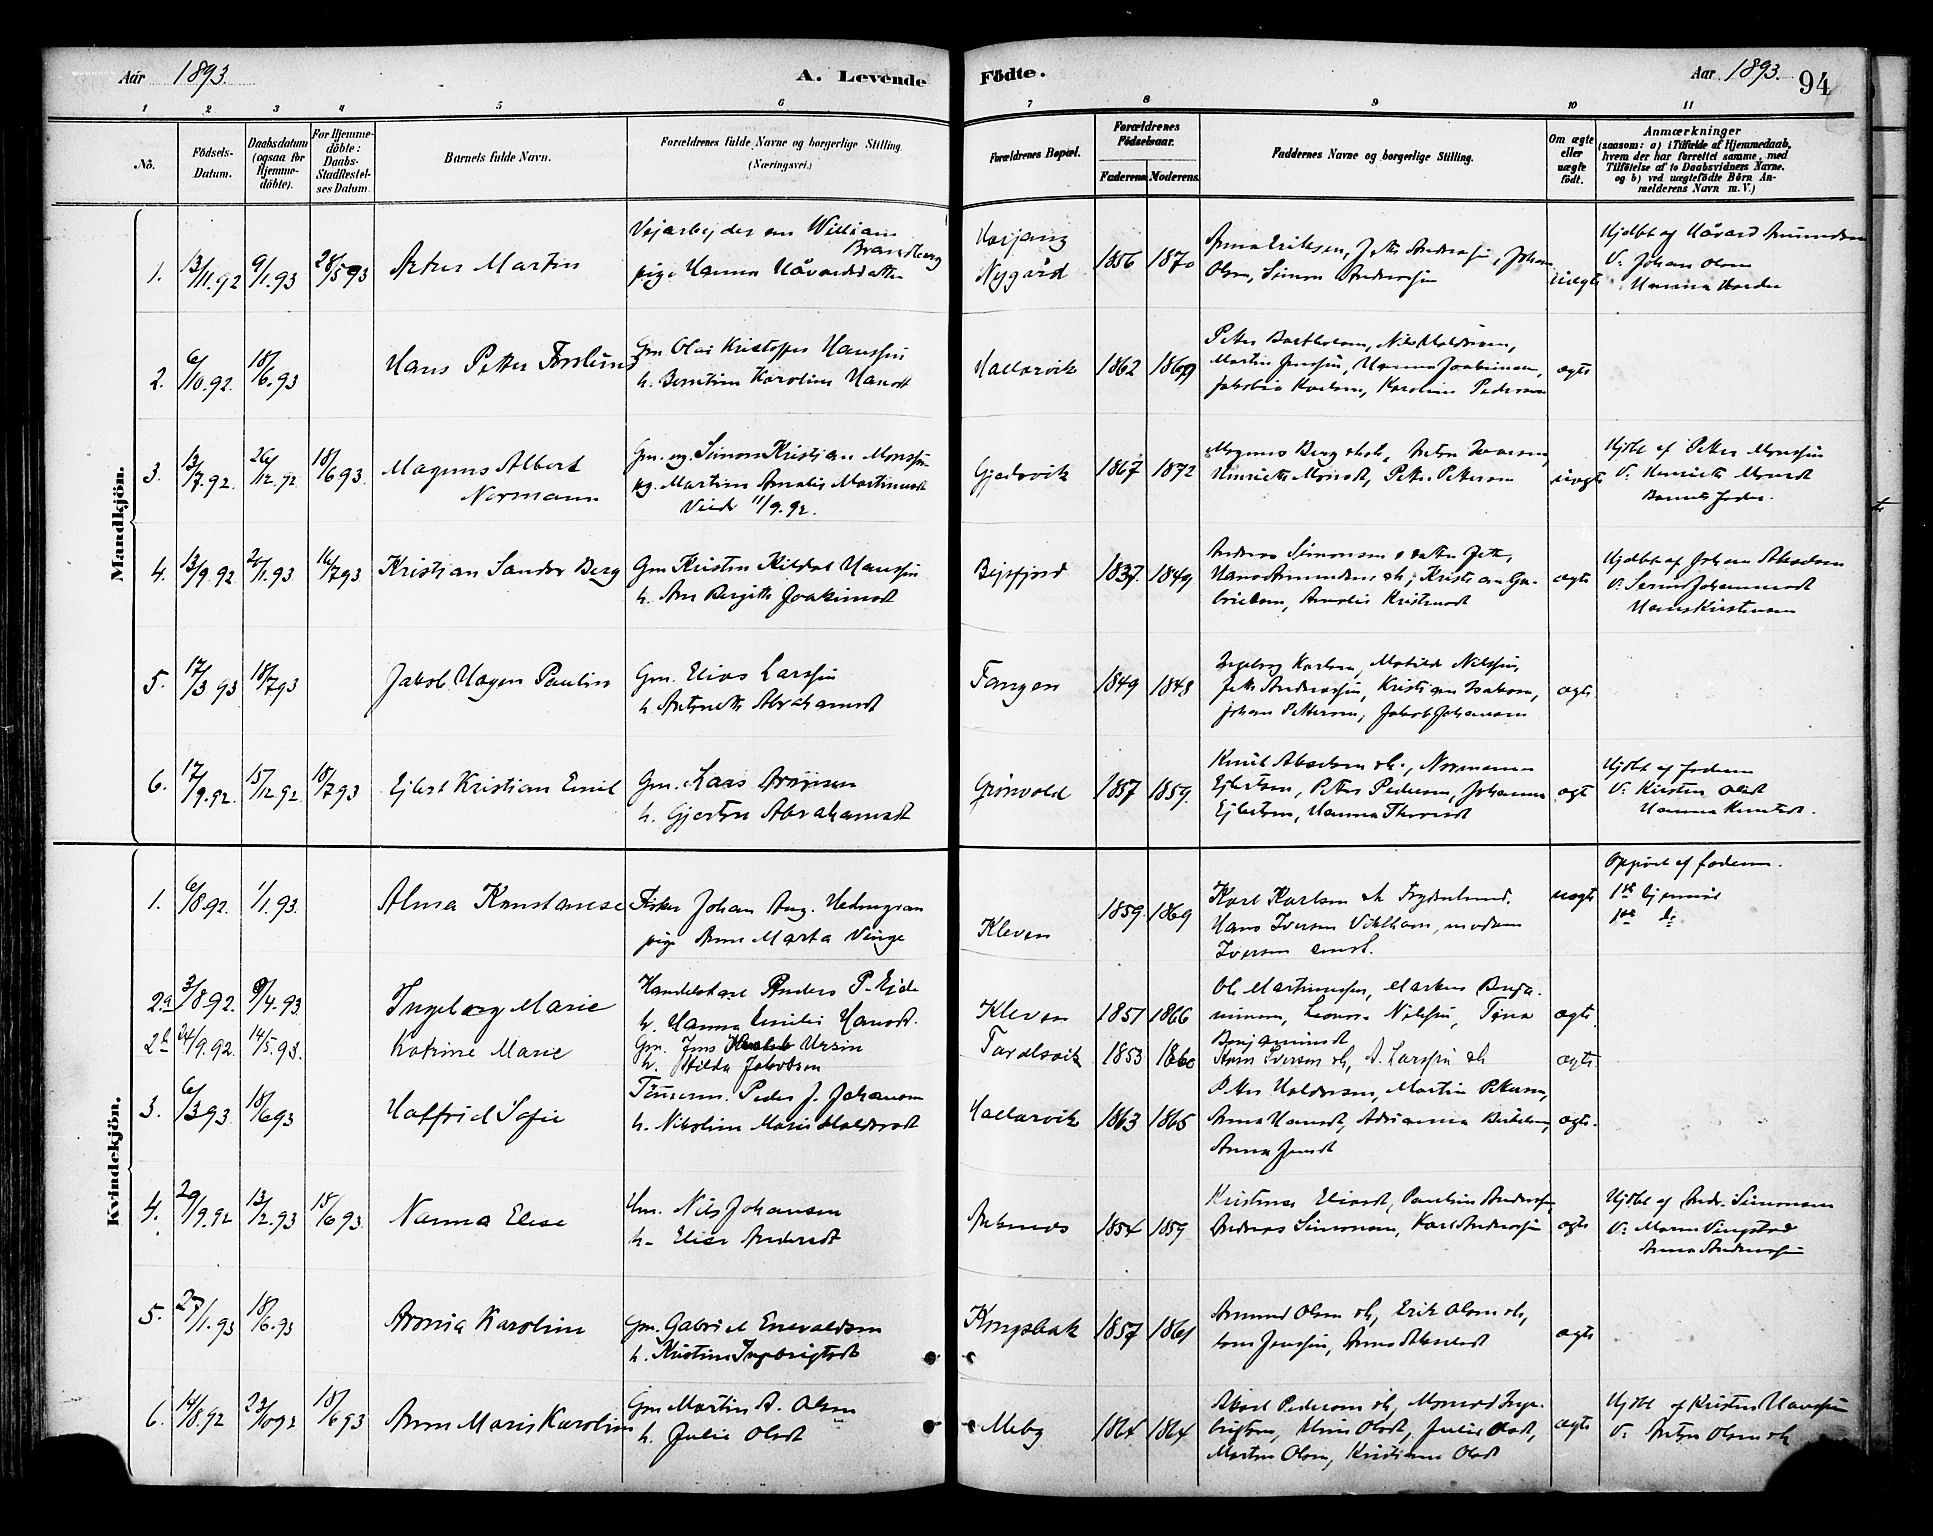 Aar 1893.
A. Levende
Födte.
Aar 1893.
94
1 2 3 4 5 6 7 8 9 10 11
No.
Födsels-Datum.
Daabsdatum (ogsaa for Hjemme-döbte).
For Hjemme-döbte: Daabs-Stadfæstel-ses Datum.
Barnets fulde Navn.
Forældrenes fulde Navne og borgerlige Stilling (Næringsvei.)
Forældrenes Bopæl.
Forældrenes Födselsaar.
Faderens. Moderens.
Faddernes Navne og borgerlige Stilling.
Om ægte eller uægte födt.
Anmærkninger
(saasom: a) i Tilfælde af Hjemmedaab,
hvem der har forrettet samme, med
Tilföielse af to Daabsvidners Navne,
og b) ved uægtefödte Börn An-
melderens Navn m. V.)
Mandkjön.
1. 13/11.92 9/1.93 28/5 93 Artur Martin
Vejarbejder em William Brandberg
pige Hanna Håvardsdatter
Nygård 1856 1870
Anna Eriksen, Jette Andersen, Johan
Olsen, Simon Andersen
uægte
Hjdbt af Håvard Amundsen
V: Johan Olsen
2. 6/10.92. 18/6.93 Hans Petter
Gm Olai Kristoffer Hansen
h. Berntine Karoline Hansdt
Hallarvik 1862 1869
Martin Jensen, Hanna Joakimsen,
Jakobia Karlsen, Karoline Pedersen
ægte
3. 13/7.92. 26/12.92 18/6 93. Magnus Albert Normann
Gm. ug. Simon Kristian Monssen
pg. Martine Amalie Martinusdt
Viede 11/9.92.
Gjedevik 1867 1872
Magnus Berg & h, Anton Iversen,
Henriette Monsdt, Petter Pettersen
uægte
Hjdbt af Petter Monssen
V: Henriette Monsdt
Barnets fader.
4. 13/9.92 2/1.93. 16/7 93 Kristian Sander Berg
Gm Kristen Kildal Hansen
h. Ane Bergitte Joakimsdt
Bejsfjord 1837. 1849
Anders Simonsen & datter Jette,
Hans Amundsen & h, Kristian Ga-
brielsen, Amalie Kristensdt
ægte
Hjdbt af Johan Akselsen
V: Serine Johannesdt
Hans Kristensen
5. 17/3 93 18/7 93 Jakob Hagen Paulin
Gm. Elias Larssen
h Antonette Abrahamsdt
Tangen 1849 1848
Ingeborg Karlsen, Matilde Nilssen,
Jette Anderssen, Kristian Isaksen,
Johan Pettersen, Jakob Johansen
ægte
6. 17/9.92. 15/12.92 18/7 93 Ejlert Kristian Emil
Gm. Lars Arntsen
h. Gjertine Abrahamsdt
Grönvold 1857 1859.
Knut Akselsen & h., Normann
Ejlertsen, Peter Pedersen, Johanna
Ejlertsen, Hanna Thoresdt
ægte
Hjdbt af faderen
V: Kirsten Olsdt
Hanna Knutsdt.
Kvindekjön.
1. 6/8.92. 1/1.93. Alma Konstanse
Fisker Johan Aug. Hedmgran
pige Anne Marta Vinge
Kleven 1859. 1869
Karl Karlsen & h Frydenlund,
Hans Iversen Vikhham, moderen
Iversen smst.
uægte
Opgivet af faderen.
1ste hjemme
1ste do
2a 3/8.92. 9/4.93. Ingeborg Marie
Handelskar Anders P. Ejde
h. Hanna Emilie Hansdt.
Kleven 1851 1866
Ole Martinussen, Markus Benja-
minsen, Leonora Nilssen, Tina
Benjaminsdt
ægte
2b 24/9.92. 14/5.93. Katrine Marie
Gm. Jens Ursin
h. Hilda Jakobsen
Taraldsvik 1853 1860
Arne Iversen & h, A. Larssen & h
ægte.
3. 6/3 93 18/6 93 Halfrid Sofie
Tömmerm. Peder J. Johansen
h. Nikoline Marie Haldorsdt
Hallarvik 1863 1865
Peter Haldorsen, Martin Petersen,
Anna Hansdt, Adrianna Bertelsen,
Anna Jensdt
ægte.
4. 29/9.92 13/2.93 18/6 93. Nanna Elise
Gm. Nils Johansen
h. Elise Andersdt
Ankenes 1854 1859
Kristense Eliasdt, Pauline Anderssen
Andreas Simonsen, Karl Anderssen
ægte
Hjdbt af Andr. Simonsen
V: Maren Vingstad
Anna Anderssen
5. 27/1.93 18/6.93 Aronia Karoline
Gm. Gabriel Enevoldsen
h. Kristine Ingebrigtsdt
Kongsbak 1857 1861
Amund Olsen & h, Erik Olsen & h,
Lars Jenssen, Anna Akselsdt
ægte
6. 14/8.92 23/10 92 18/6 93 Anne Marie Karoline
Gm Martin A. Olsen
h. Julie Olsdt
Meby 1864 1864
Aksel Pedersen & h, Monrad Inge-
brigtsen, Mina Olsdt, Julie Olsdt,
Morten Olsen, Kristiane Olsdt
ægte
Hjdbt af Kristen Hanssen
V. Anton Olsen & h